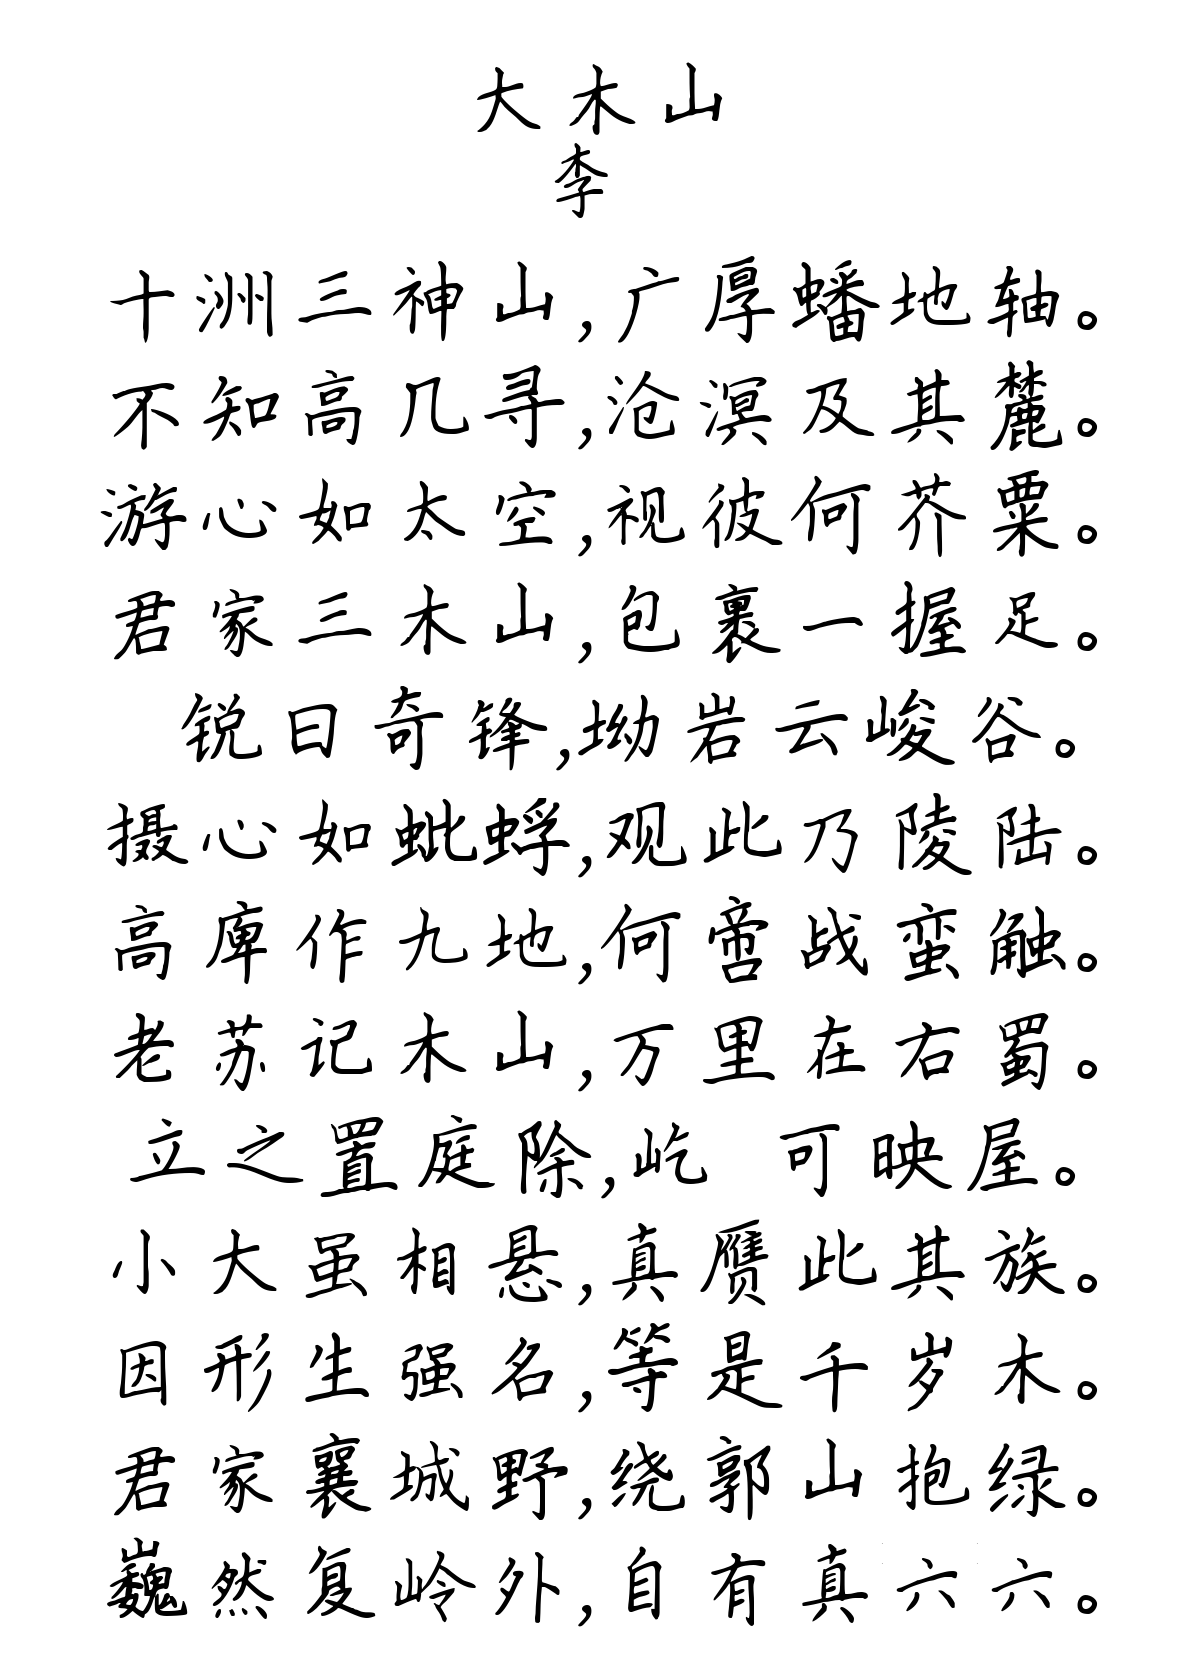 大木山
李
十洲三神山,广厚蟠地轴。
不知高几寻,沧溟及其麓。
游心如太空,视彼何芥粟。
君家三木山,包裹一握足。
锐曰奇锋,坳岩云峻谷。
摄心如蚍蜉,观此乃陵陆。
高庳作九地,何啻战蛮触。
老苏记木山,万里在右蜀。
立之置庭除,屹 可映屋。
小大虽相悬,真赝此其族。
因形生强名,等是千岁木。
君家襄城野,绕郭山抱绿。
巍然复岭外,自有真六六。